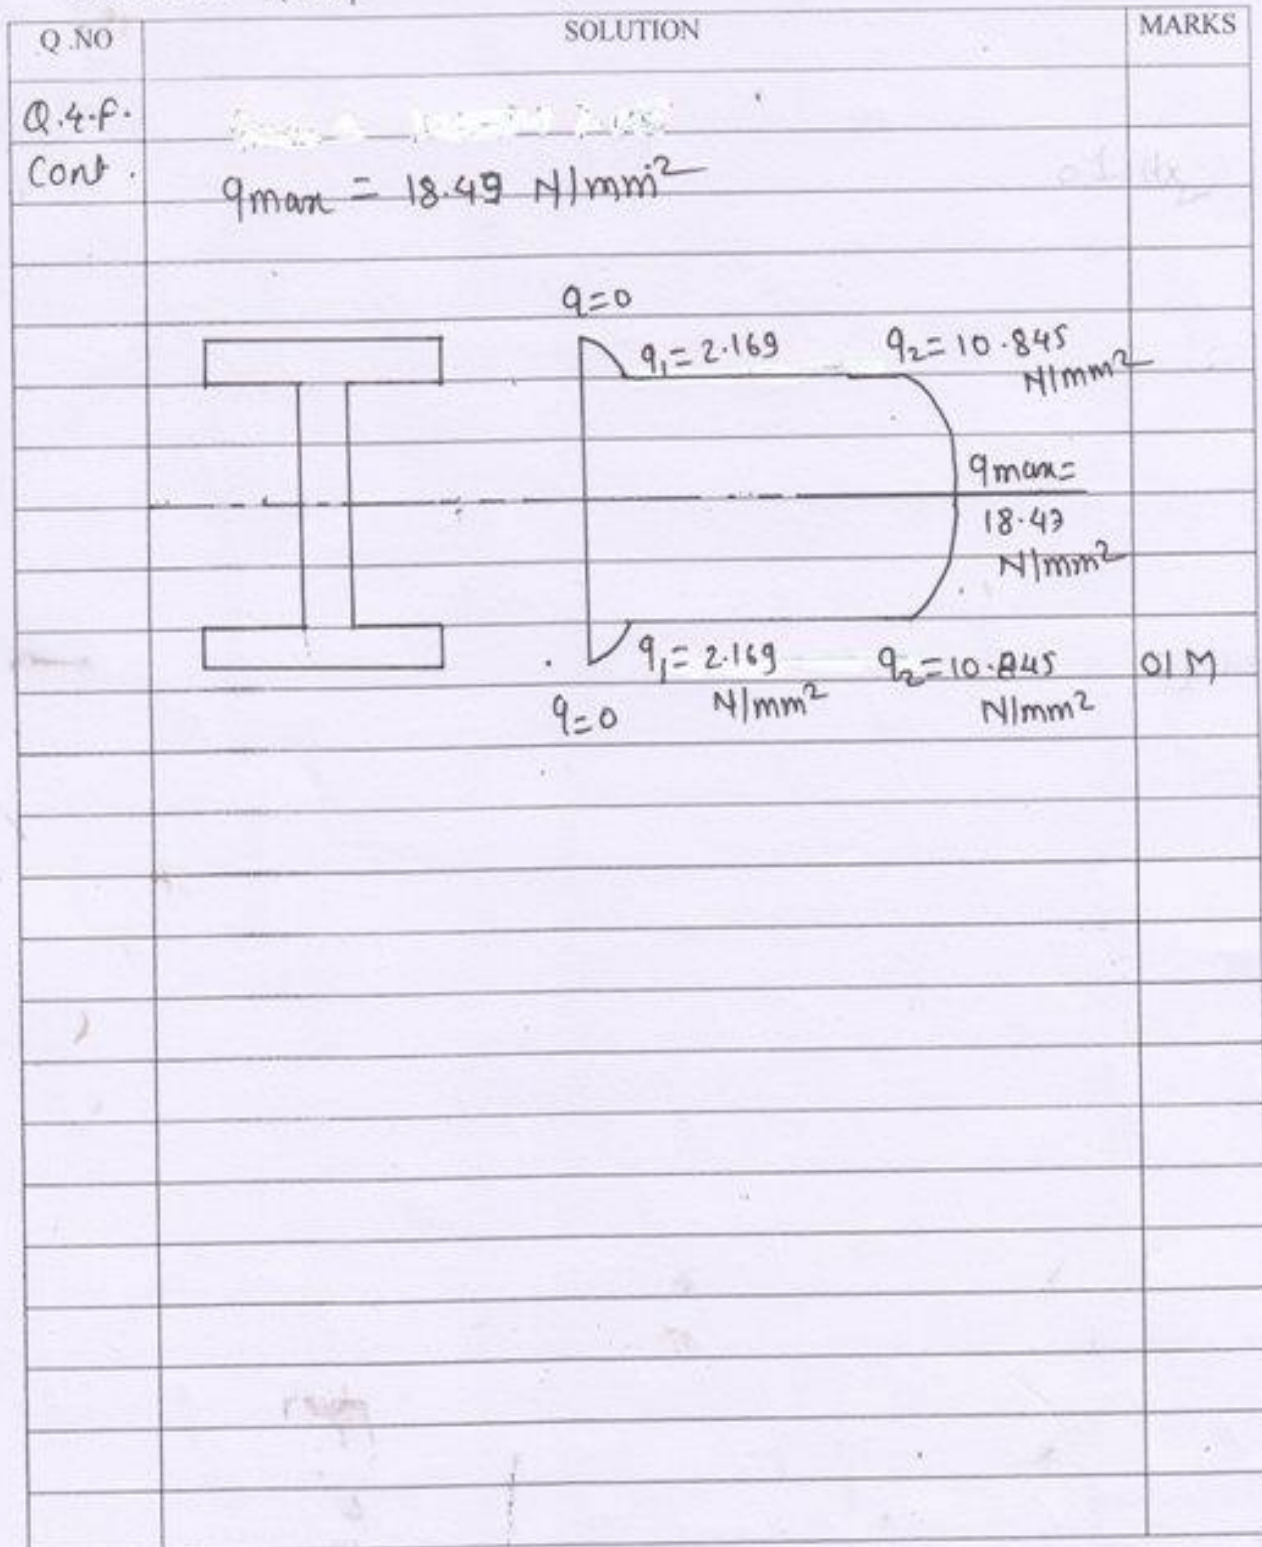 Q.NO SOLUTION MARKS
Q.4.f.
Cont.
qmax = 18.49 N/mm²
q=0
q₁= 2.169 q₂= 10.845
N/mm²
qmax=
18.47
N/mm²
q₁= 2.169 q₂=10.845 01M
N/mm² N/mm²
q=0